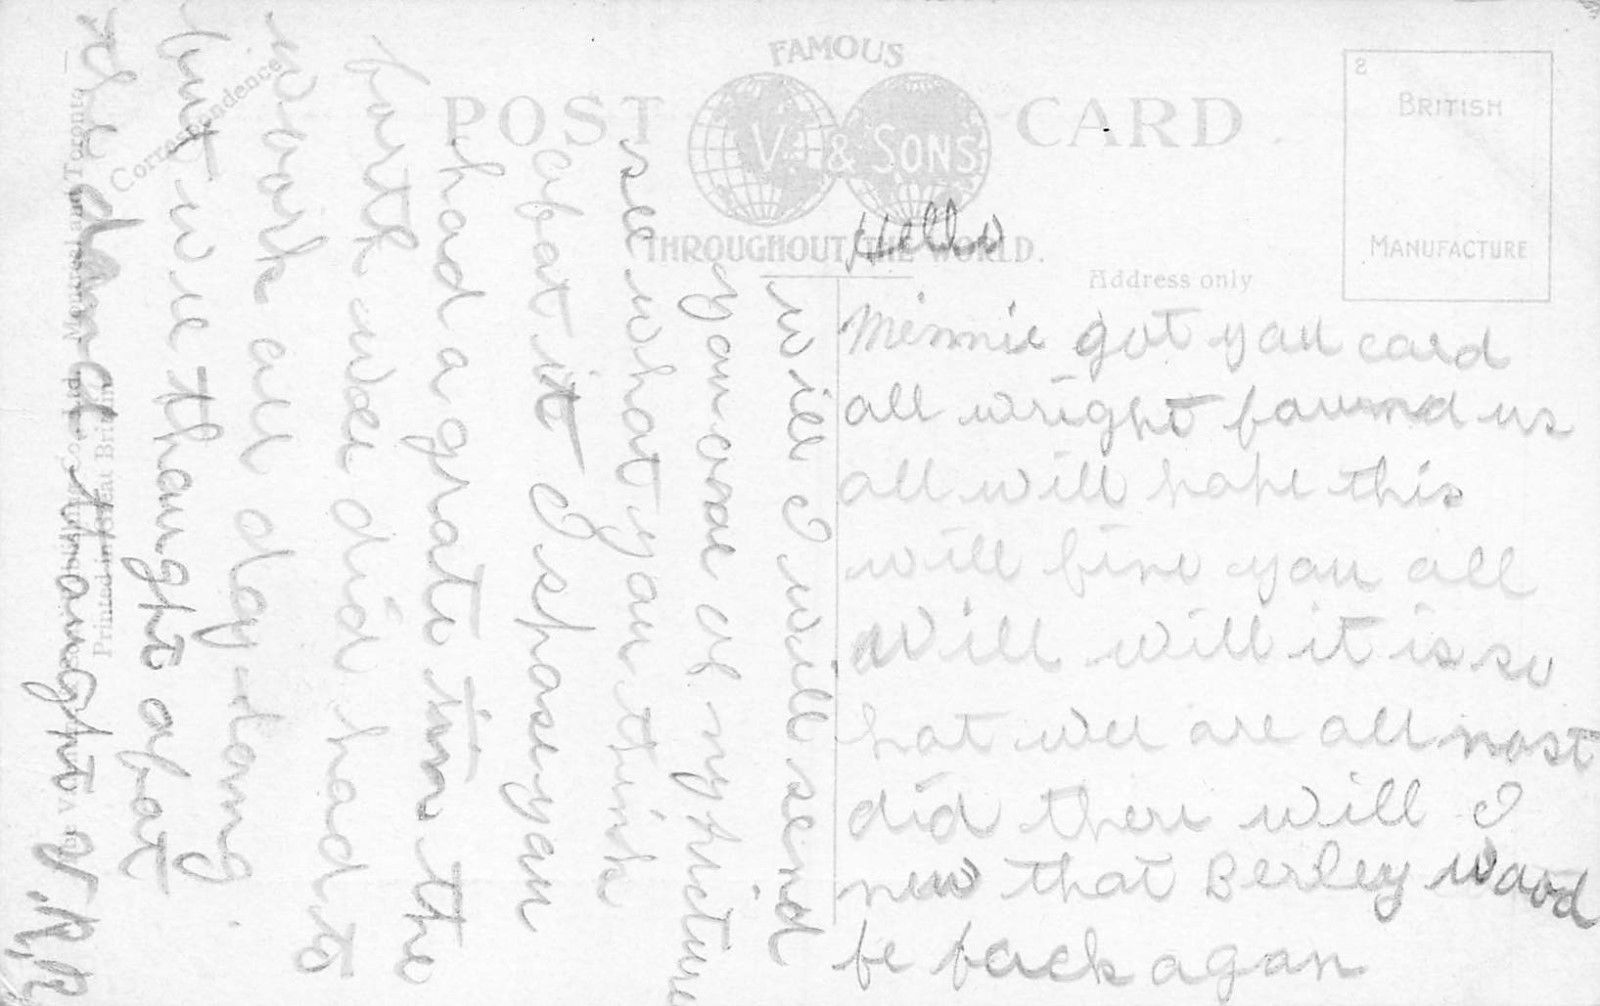 FAMOUS
POST CARD
V. & SONS
THROUGHOUT THE WORLD.
Correspondence
Address only
8
BRITISH
MANUFACTURE
Printed in Great Britain
Hello
Minnie got you card
all wright found us
all will hope this
will fine you all
Will will it is so
hot wee are all most
did there will I
new that Berley
be back agan
will I will send
you one of my picture
see what you think
abot it I spose you
had a grate tim the
forth wee did had to
work all day-long.
but wee thought abot
the dance thought
V.R,R